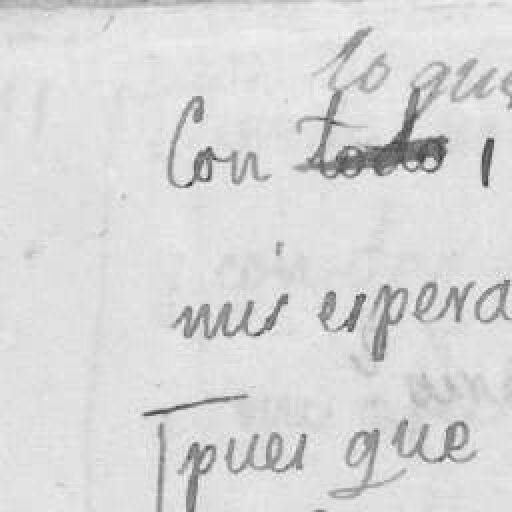 lo que
Con todo,
mis espera
pues que